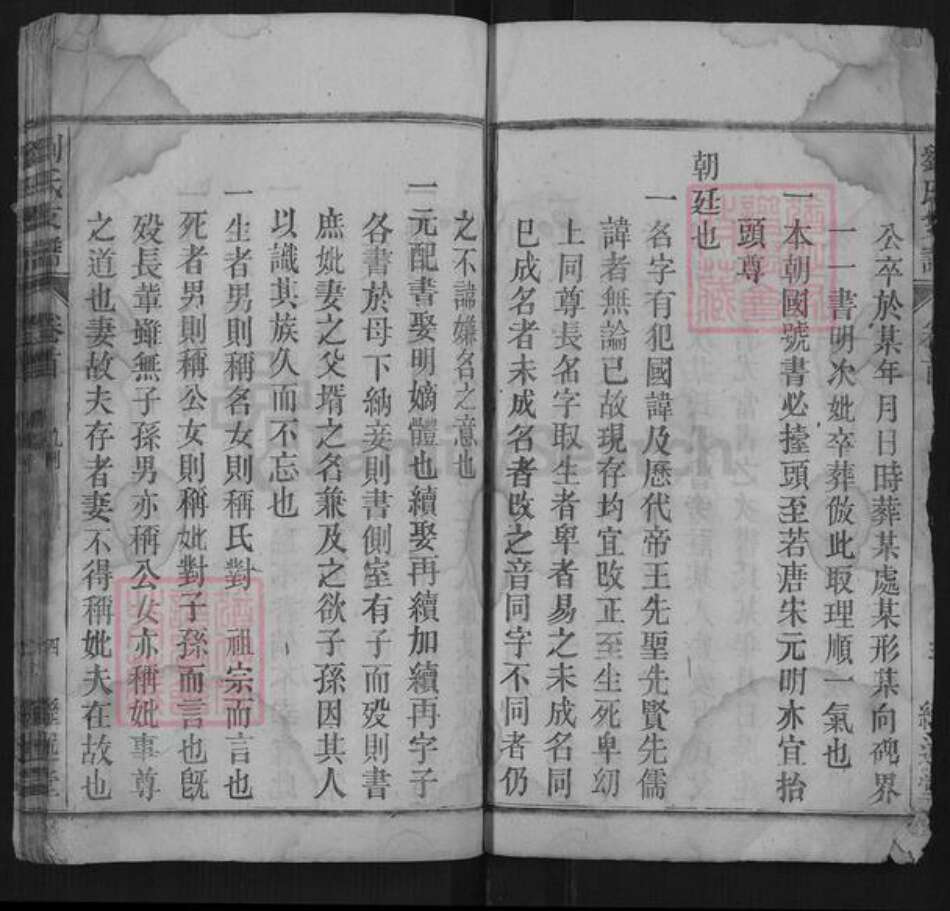 公卒於某年月日時葬某處某形某向碑界
一一書明次妣卒葬倣此取理順一氣也
一本朝國號書必擡頭至若唐宋元明亦宜抬
頭尊
朝廷也
一名字有犯國諱及歷代帝王先聖先賢先儒
諱者無論已故現存均宜改正至生死卑幼
上同尊長名字取生者卑者易之未成名同
已成名者未成名者改之音同字不同者仍
之不諱嫌名之意也
一元配書娶明嫡體也續娶再續加續再字子
各書於母下納妾則書側室有子而歿則書
庶妣妻之父壻之名兼及之欲子孫因其人
以識其族久而不忘也
一生者男則稱名女則稱氏對 祖宗而言也
一死者男則稱公女則稱妣對子孫而言也旣
歿長輩雖無子孫男亦稱公女亦稱妣事尊
之道也妻故夫存者妻不得稱妣夫在故也
劉氏支譜 卷首
FamilySearch